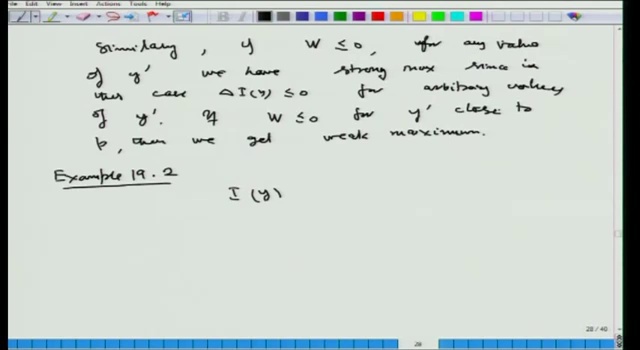 File View Insert Actions Tools Help
Similarly, if W ≤ 0, for any value
of y' we have strong max since in
this case ΔI(y) ≤ 0 for arbitrary values
of y'. If W ≤ 0 for y' close to
p, then we get weak maximum.
Example 19.2
I (y)
28 / 40
28